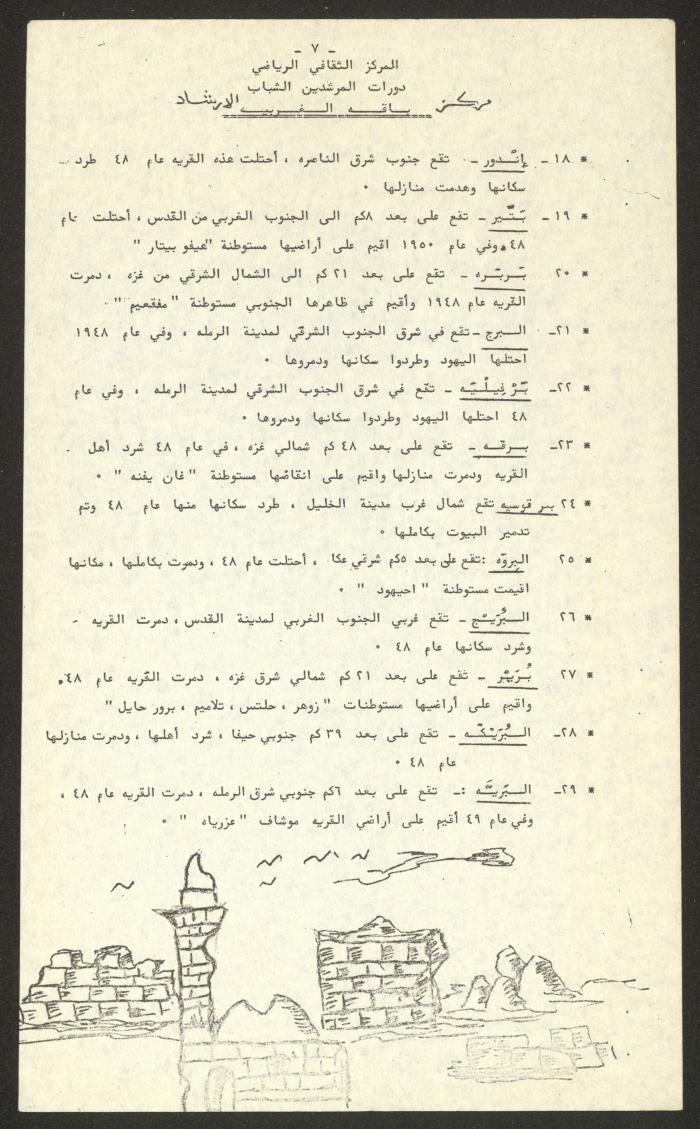 - ٧ -
المركز الثقافي الرياضي
دورات المرشدين الشباب
مركز باقه الغربيه الارشاد
* ١٨ - إنْدور - تقع جنوب شرق الناصره ، أحتلت هذه القريه عام ٤٨ طرد
سكانها وهدمت منازلها ٠
* ١٩ - بَتّير - تقع على بعد ٨كم الى الجنوب الغربي من القدس ، أحتلت عام
٤٨، وفي عام ١٩٥٠ اقيم على أراضيها مستوطنة "هيفو بيتار"
* ٢٠ بَربَره - تقع على بعد ٢١ كم الى الشمال الشرقي من غزه ، دمرت
القريه عام ١٩٤٨ وأقيم في ظاهرها الجنوبي مستوطنة "مفقعيم" ٠
* ٢١- البرج - تقع في شرق الجنوب الشرقي لمدينة الرمله ، وفي عام ١٩٤٨
احتلها اليهود وطردوا سكانها ودمروها ٠
* ٢٢- بَرْفيلْيَه - تقع في شرق الجنوب الشرقي لمدينة الرمله ، وفي عام
٤٨ احتلها اليهود وطردوا سكانها ودمروها ٠
* ٢٣- برقه - تقع على بعد ٤٨ كم شمالي غزه ، في عام ٤٨ شرد أهل
القريه ودمرت منازلها واقيم على انقاضها مستوطنة "غان يفنه" ٠
* ٢٤ بير قوسيه تقع شمال غرب مدينة الخليل ، طرد سكانها منها عام ٤٨ وتم
تدمير البيوت بكاملها ٠
* ٢٥ البروَه : تقع على بعد ٥كم شرقي عكا ، أحتلت عام ٤٨ ، ودمرت بكاملها ، مكانها
اقيمت مستوطنة " احيهود " ٠
* ٢٦ البُرَيْج - تقع غربي الجنوب الغربي لمدينة القدس ، دمرت القريه -
وشرد سكانها عام ٤٨ ٠
* ٢٧ بُرَيْر - تقع على بعد ٢١ كم شمالي شرق غزه ، دمرت القريه عام ٤٨،
واقيم على أراضيها مستوطنات "زوهر ، حلتس ، تلاميم ، برور حايل"
* ٢٨- البُرَيْكَه - تقع على بعد ٣٩ كم جنوبي حيفا ، شرد أهلها ، ودمرت منازلها
عام ٤٨ ٠
* ٢٩- البَريَّه :- تقع على بعد ٦كم جنوبي شرق الرمله ، دمرت القريه عام ٤٨ ،
وفي عام ٤٩ أقيم على أراضي القريه موشاف "عزرياه" ٠